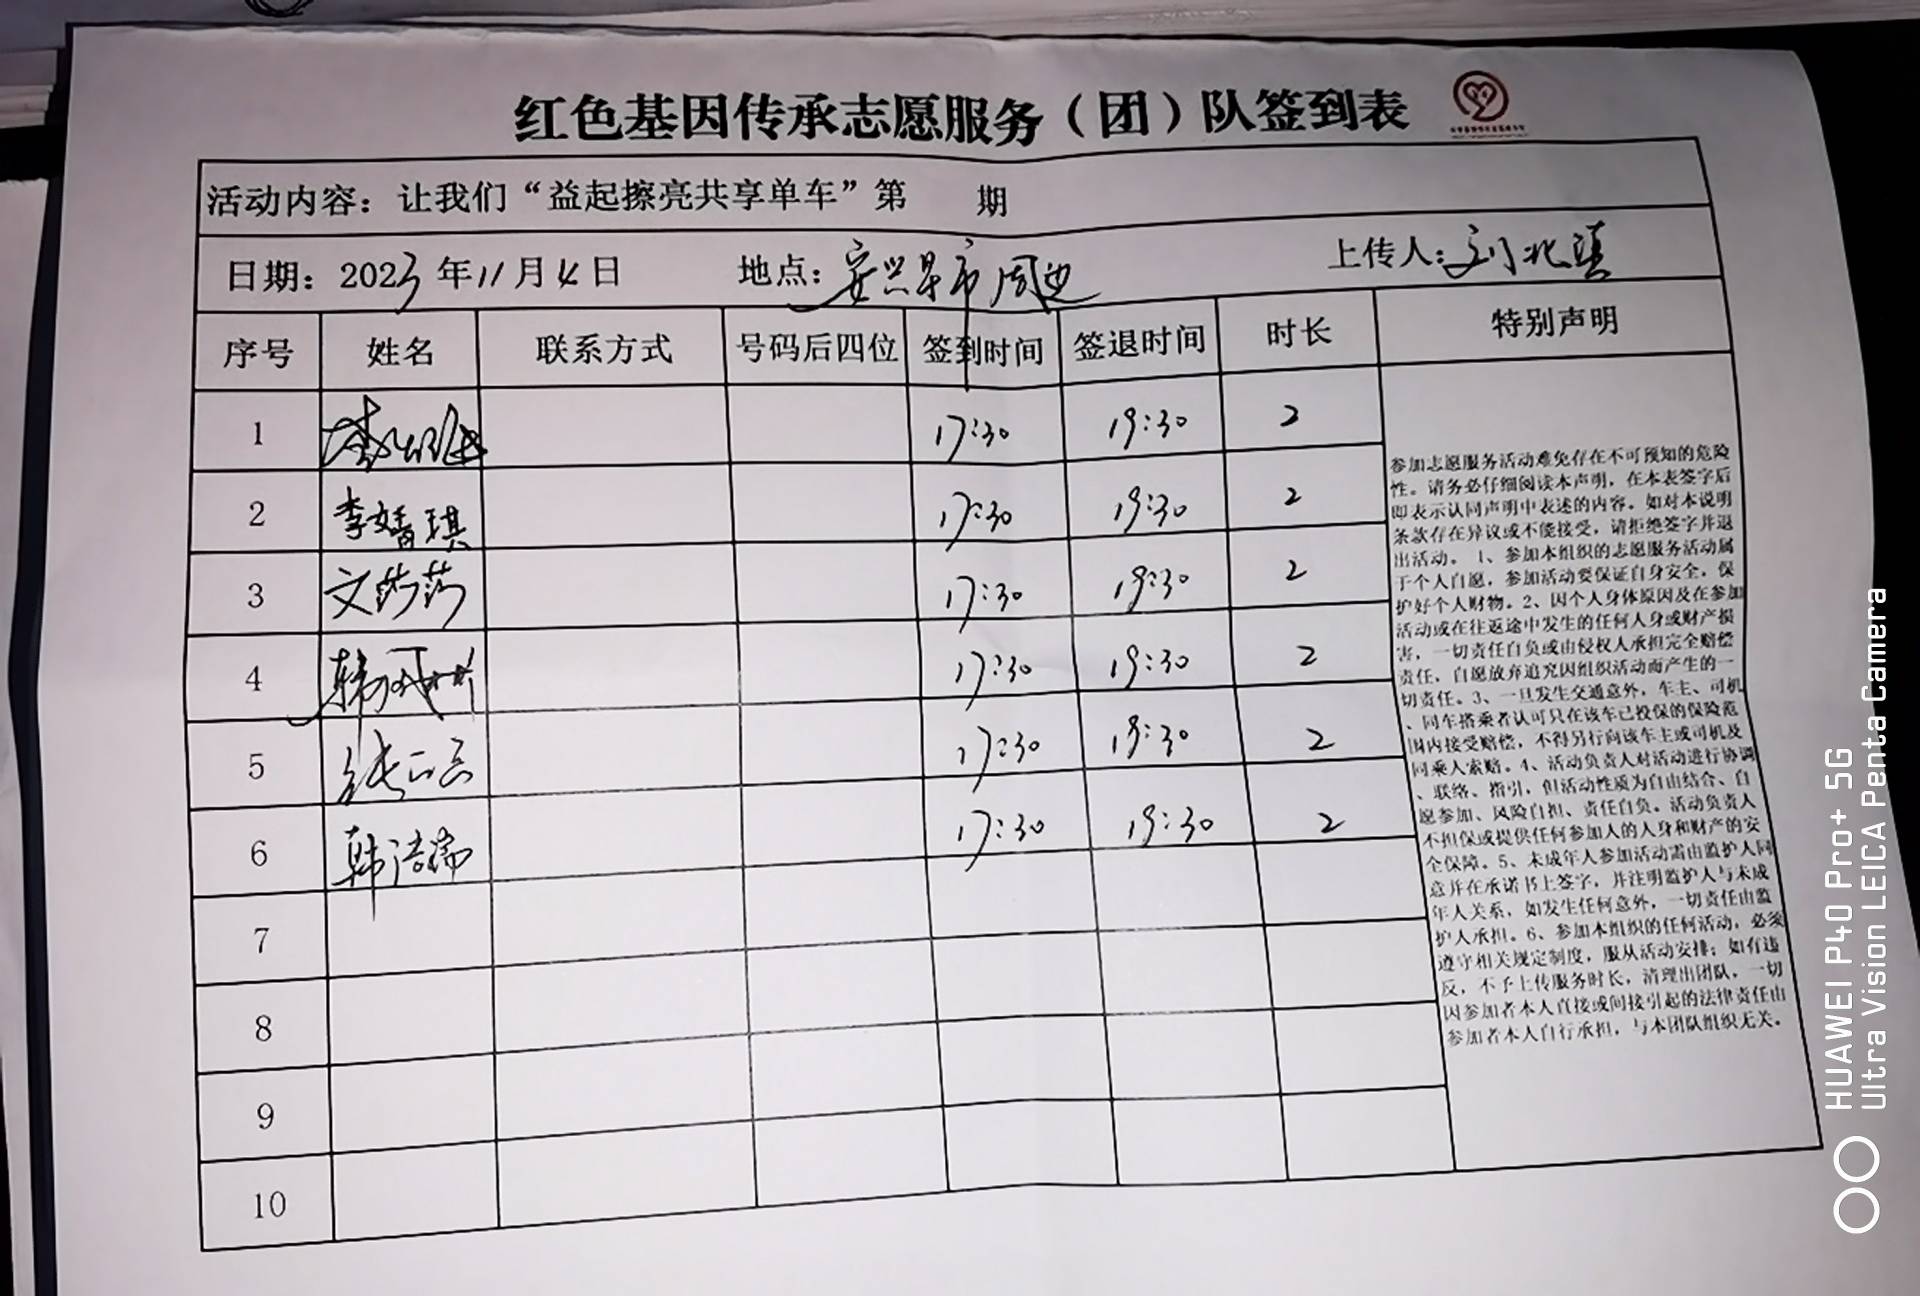 红色基因传承志愿服务（团）队签到表
活动内容：让我们“益起擦亮共享单车”第 期
日期：2023年11月4日 地点：安兴早市周边 上传人：刘北
序号 姓名 联系方式 号码后四位 签到时间 签退时间 时长 特别声明
1 17:30 19:30 2
2 李婧琪 17:30 19:30 2
3 文莎莎 17:30 19:30 2
4 韩 17:30 19:30 2
5 张 17:30 19:30 2
6 韩洁 17:30 19:30 2
7
8
9
10
参加志愿服务活动难免存在不可预知的危险
性。请务必仔细阅读本声明，在本表签字后
即表示认同声明中表述的内容。如对本说明
条款存在异议或不能接受，请拒绝签字并退
出活动。1、参加本组织的志愿服务活动属
于个人自愿，参加活动要保证自身安全，保
护好个人财物。2、因个人身体原因及在参加
活动或在往返途中发生的任何人身或财产损
害，一切责任自负或由侵权人承担完全赔偿
责任，自愿放弃追究因组织活动而产生的一
切责任。3、一旦发生交通意外，车主、司机
、同车搭乘者认可只在该车已投保的保险范
围内接受赔偿，不得另行向该车主或司机及
同乘人索赔。4、活动负责人对活动进行协调
、联络、指引，但活动性质为自由结合、自
愿参加、风险自担、责任自负。活动负责人
不担保或提供任何参加人的人身和财产的安
全保障。5、未成年人参加活动需由监护人同
意并在承诺书上签字，并注明监护人与未成
年人关系，如发生任何意外，一切责任由监
护人承担。6、参加本组织的任何活动，必须
遵守相关规定制度，服从活动安排；如有违
反，不予上传服务时长，清理出团队，一切
因参加者本人直接或间接引起的法律责任由
参加者本人自行承担，与本团队组织无关。
HUAWEI P40 Pro+ 5G
Ultra Vision LEICA Penta Camera